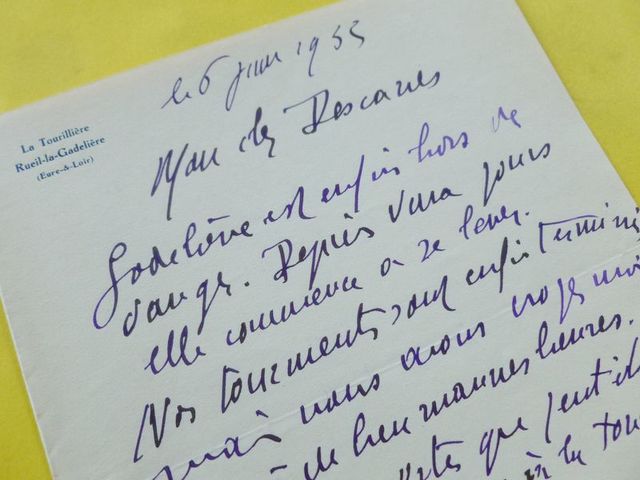 La Tourillière
Rueil-la-Gadelière
(Eure-&-Loir)
le 6 juin 1953
Mon ch Descaves
Godelieve est enfin hors de
danger. Depuis jours
elle commence a se lever.
Nos tourments sont enfin terminé
mais nous avons
de bien mauvaises heures.
que
la tou